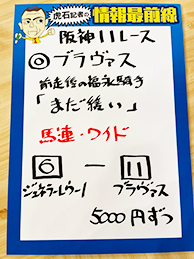 虎石記者の
情報最前線
阪神11レース
◎ブラヴァス
前走後の福永騎手
「まだ緩い」
馬連・ワイド
6 — 11
ジェネラーレウーノ ブラヴァス
5000円ずつ